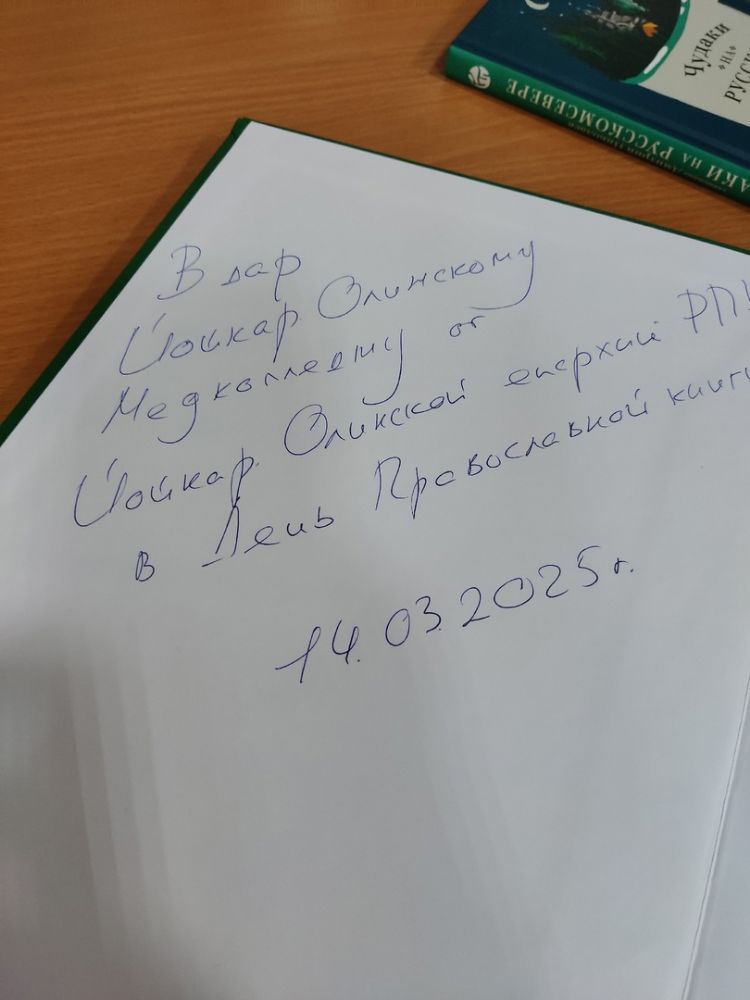 Чудаки
НА
РУССК
АКИ НА РУССКОМ СЕВЕРЕ
В дар
Йошкар Олинскому
Медколледжу от
Йошкар Олинской епархии РПЦ
в День Православной книги
14.03.2025 г.